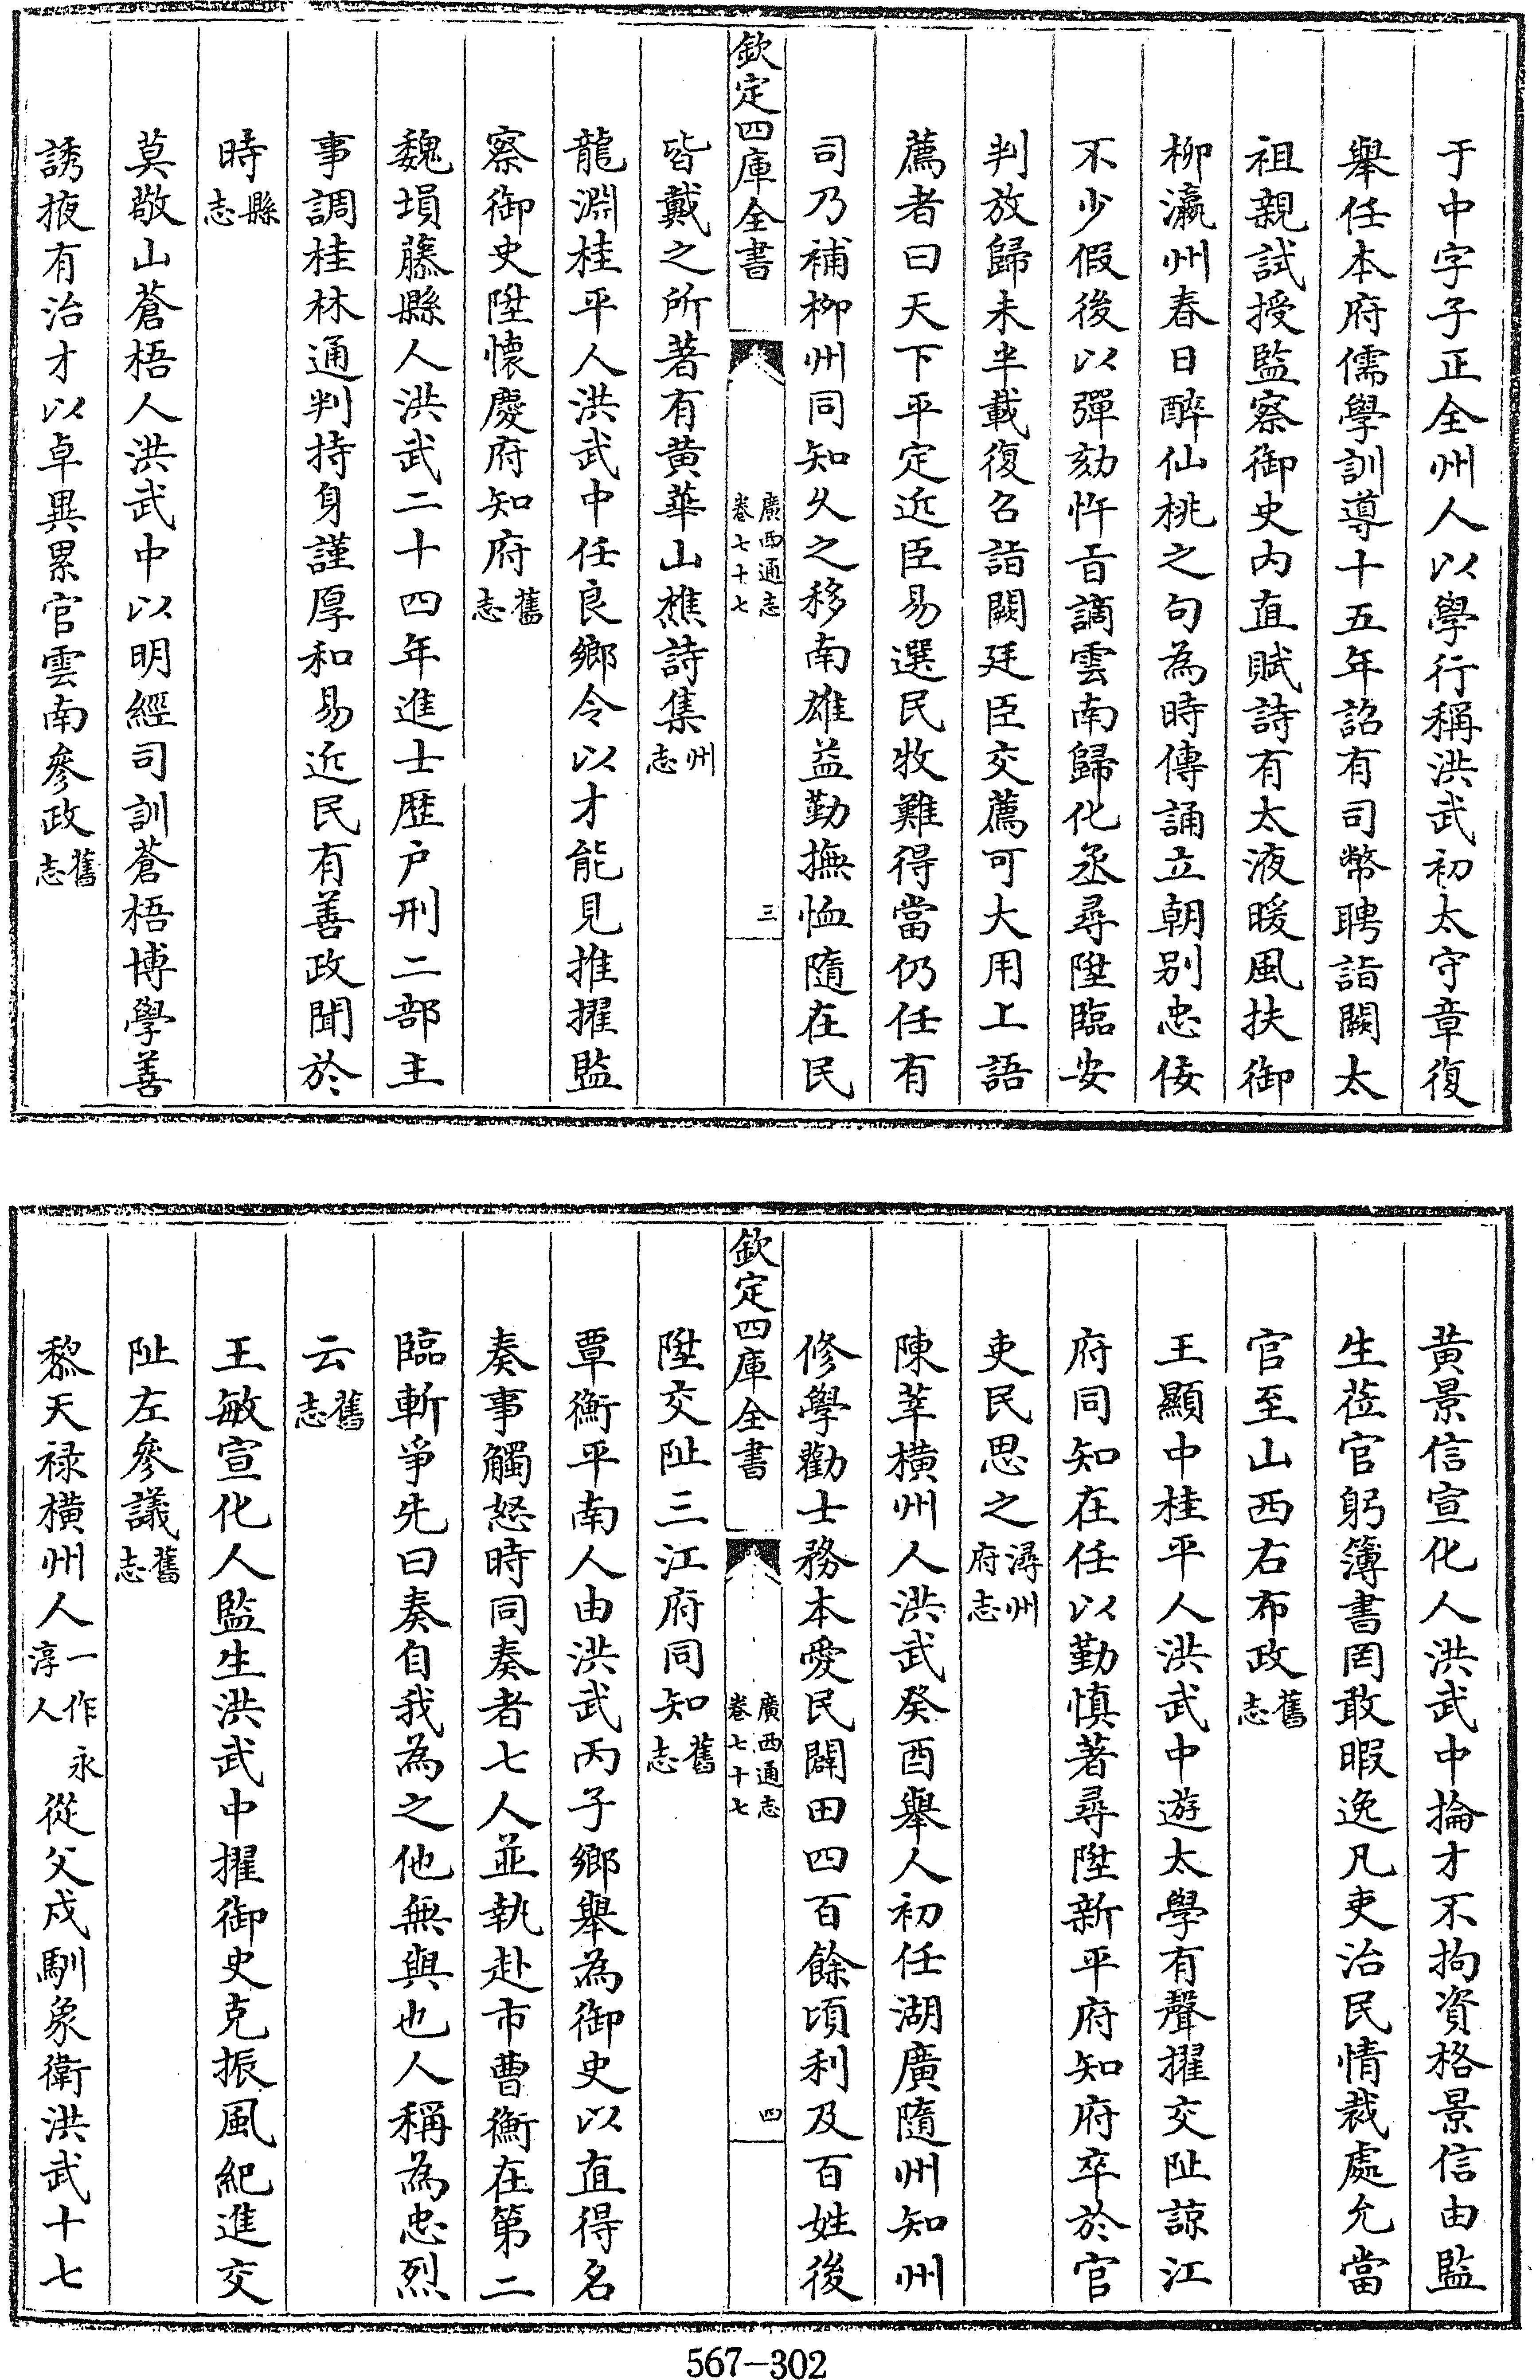 于中字子正全州人以學行稱洪武初太守章復
舉任本府儒學訓導十五年詔有司幣聘詣闕太
祖親試授監察御史内直賦詩有太液暖風扶御
柳瀛州春日醉仙桃之句為時傳誦立朝别忠佞
不少假後以彈劾忤旨謫雲南歸化丞尋陞臨安
判放歸未半載復召詣闕廷臣交薦可大用上語
薦者曰天下平定近臣易選民牧難得當仍任有
司乃補柳州同知久之移南雄益勤撫恤隨在民
欽定四庫全書
廣西通志
卷七十七
三
皆戴之所著有黄華山樵詩集州志
龍淵桂平人洪武中任良鄉令以才能見推擢監
察御史陞懷慶府知府舊志
魏塤藤縣人洪武二十四年進士歴户刑二部主
事調桂林通判持身謹厚和易近民有善政聞於
時縣志
莫敬山蒼梧人洪武中以明經司訓蒼梧博學善
誘掖有治才以卓異累官雲南參政舊志
黄景信宣化人洪武中掄才不拘資格景信由監
生莅官躬簿書罔敢暇逸凡吏治民情裁處允當
官至山西右布政舊志
王顯中桂平人洪武中遊太學有聲擢交阯諒江
府同知在任以勤慎著尋陞新平府知府卒於官
吏民思之潯州府志
陳莘横州人洪武癸酉舉人初任湖廣隨州知州
修學勸士務本愛民闢田四百餘頃利及百姓後
欽定四庫全書
廣西通志
卷七十七
四
陞交阯三江府同知舊志
覃衡平南人由洪武丙子鄉舉為御史以直得名
奏事觸怒時同奏者七人並執赴市曹衡在第二
臨斬爭先曰奏自我為之他無與也人稱為忠烈
云舊志
王敏宣化人監生洪武中擢御史克振風紀進交
阯左參議舊志
黎天禄横州人一作永淳人從父戍馴象衛洪武十七
567-302